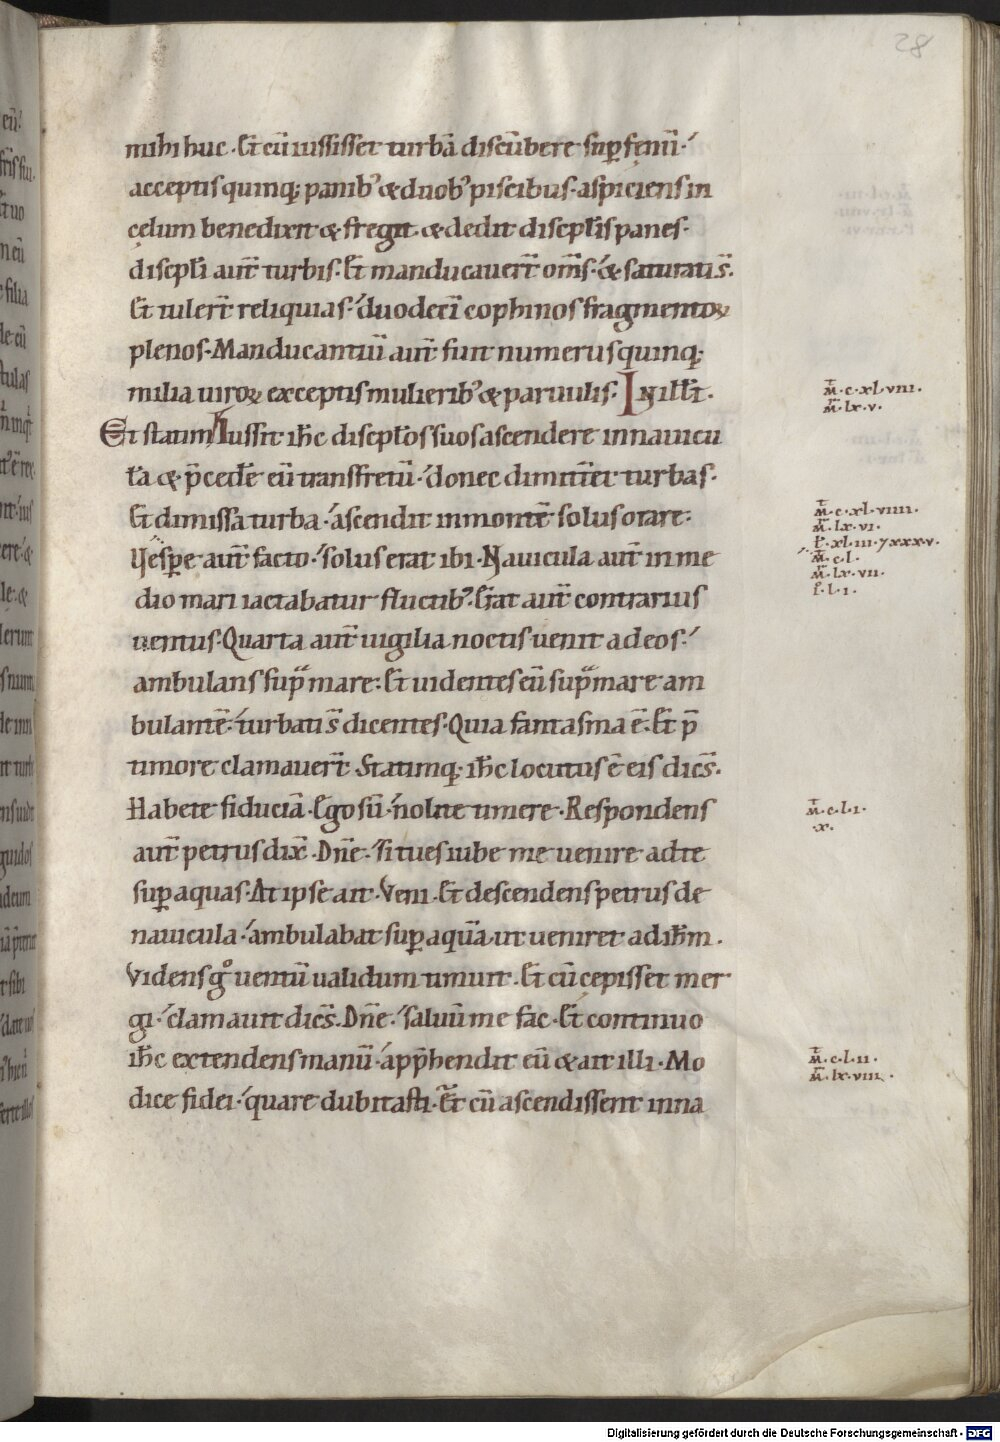 28
mihi huc. Et cū iussisset turbā discūbere sup̱ fęnū.
acceptis quinq; panib; & duob; piscibus. aspiciens in
cęlum benedixit & fregit. & dedit discipl̄is panes.
discipl̄i aut̄ turbis. Et manducauert̄ om̄s. & saturati s̄.
Et tulert̄ reliquias. duodecī cophinos fragmentoꝝ
plenos. Manducantiū aut̄ fuit numerus quinq;
milia uiroꝝ exceptis mulierib; & paruulis. In ill̄ t̄.
Et statim Iussit ih̄c discipl̄os suos ascendere in nauicu
l̄a & p̄cedēe eū trans fretū. donec dimittēt turbas.
Et dimissa turba. ascendit in montē solus orare.
Vesꝑe aut̄ facto. solus erat ibi. Nauicula aut̄ in me
dio mari iactabatur fluctib;. Erat aut̄ contrarius
uentus. Quarta aut̄ uigilia noctis uenit ad eos.
ambulans supᵃ mare. Et uidentes eū supᵃ mare am
bulantē. turbati s̄ dicentes. Quia fantasma ē. Et p̄
timore clamauert̄. Statimq; ih̄c locutus ē eis dic̄s.
Habete fiduciā. Ego sū. nolite timere. Respondens
aut̄ petrus dix̄. Dn̄e. si tu es iube me uenire ad te
suꝑ aquas. At ipse ait. Veni. Et descendens petrus de
nauicula. ambulabat suꝑ aquā ut ueniret ad ih̄m.
Videns gͦ uentū ualidum timuit. Et cū cepisset mer
gi. clamauit dic̄s. Dn̄e. saluū me fac. Et continuo
ih̄c extendens manū. app̄hendit eū & ait illi. Mo
dice fidei. quare dubitasti. Et cū ascendissent in na
m̄. c. xl. viii.
m̄. lx. v.
m̄. c. xl. viiii.
m̄. lx. vi.
l̄. xl. iii. 7 xxx. v.
m̄. c. l.
m̄. lx. vii.
l. i.
m̄. c. l. i.
x.
m̄. c. l. ii.
m̄. lx. viii.
Digitalisierung gefördert durch die Deutsche Forschungsgemeinschaft - DFG